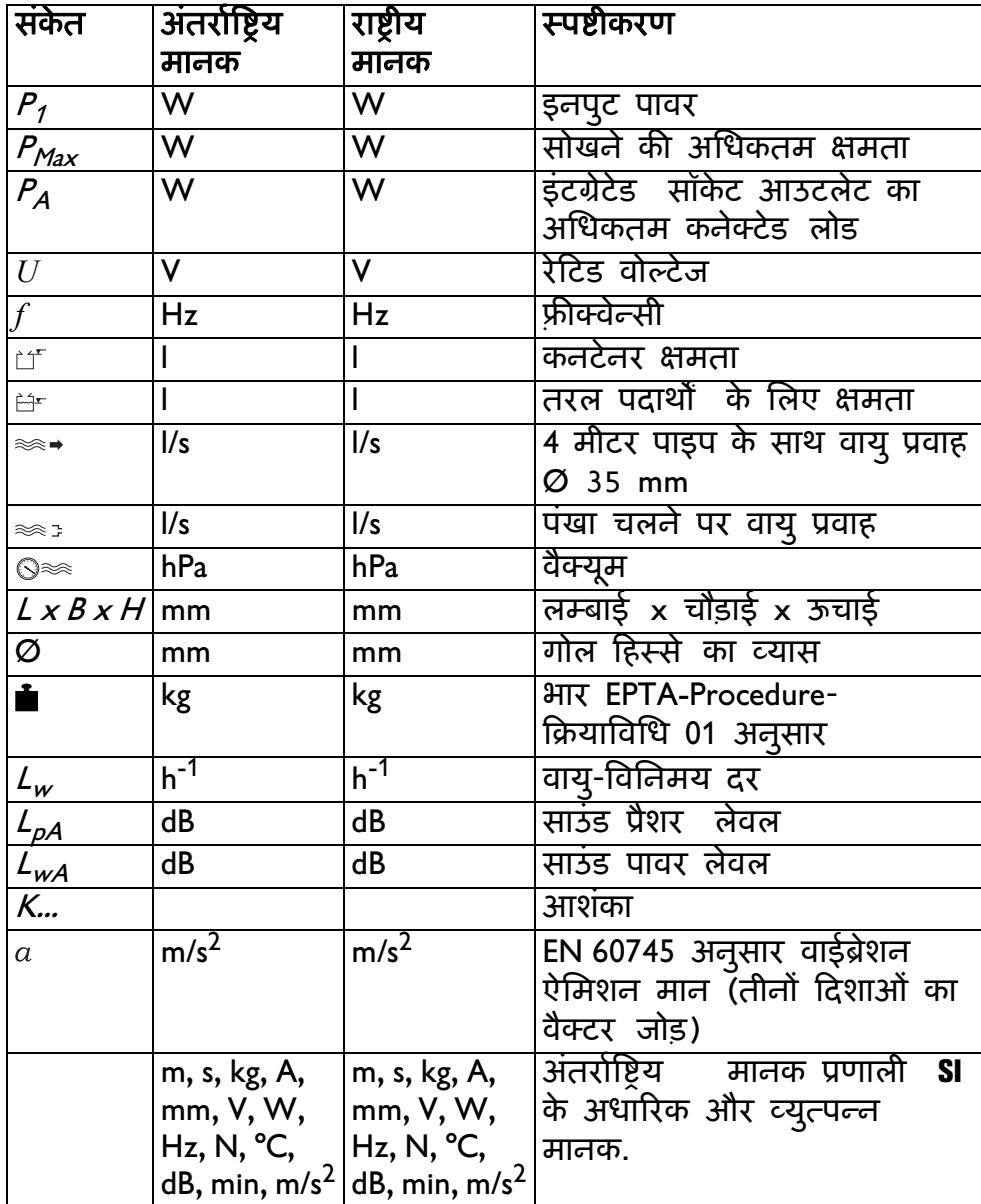 संकेत अंतर्राष्ट्रिय राष्ट्रीय स्पष्टीकरण
मानक मानक
P1 W W इनपुट पावर
PMax W W सोखने की अधिकतम क्षमता
PA W W इंटग्रेटेड सॉकेट आउटलेट का
अधिकतम कनेक्टेड लोड
U V V रेटिड वोल्टेज
f Hz Hz फ़्रीक्वेन्सी
l l कनटेनर क्षमता
l l तरल पदार्थों के लिए क्षमता
l/s l/s 4 मीटर पाइप के साथ वायु प्रवाह
Ø 35 mm
l/s l/s पंखा चलने पर वायु प्रवाह
hPa hPa वैक्यूम
L x B x H mm mm लम्बाई x चौड़ाई x ऊचाई
Ø mm mm गोल हिस्से का व्यास
kg kg भार EPTA-Procedure-
क्रियाविधि 01 अनुसार
Lw h-1 h-1 वायु-विनिमय दर
LpA dB dB साउंड प्रैशर लेवल
LwA dB dB साउंड पावर लेवल
K... आशंका
a m/s2 m/s2 EN 60745 अनुसार वाईब्रेशन
ऐमिशन मान (तीनों दिशाओं का
वैक्टर जोड़)
m, s, kg, A, m, s, kg, A, अंतर्राष्ट्रिय मानक प्रणाली SI
mm, V, W, mm, V, W, के अधारिक और व्युत्पन्न
Hz, N, °C, Hz, N, °C, मानक.
dB, min, m/s2 dB, min, m/s2